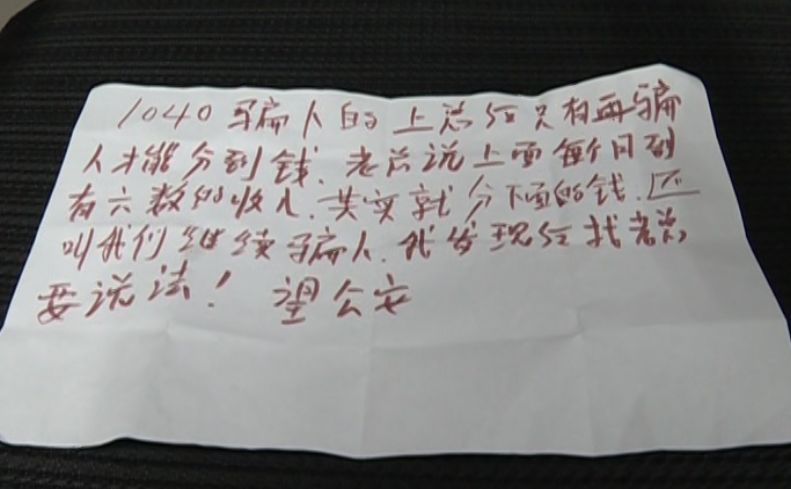 1040骗人的上总后只有再骗
人才能分到钱.老总说上面每个月到
有六数的收入.其实就分下面的钱.还
叫我们继续骗人.我发现后找老总
要说法！ 望公安